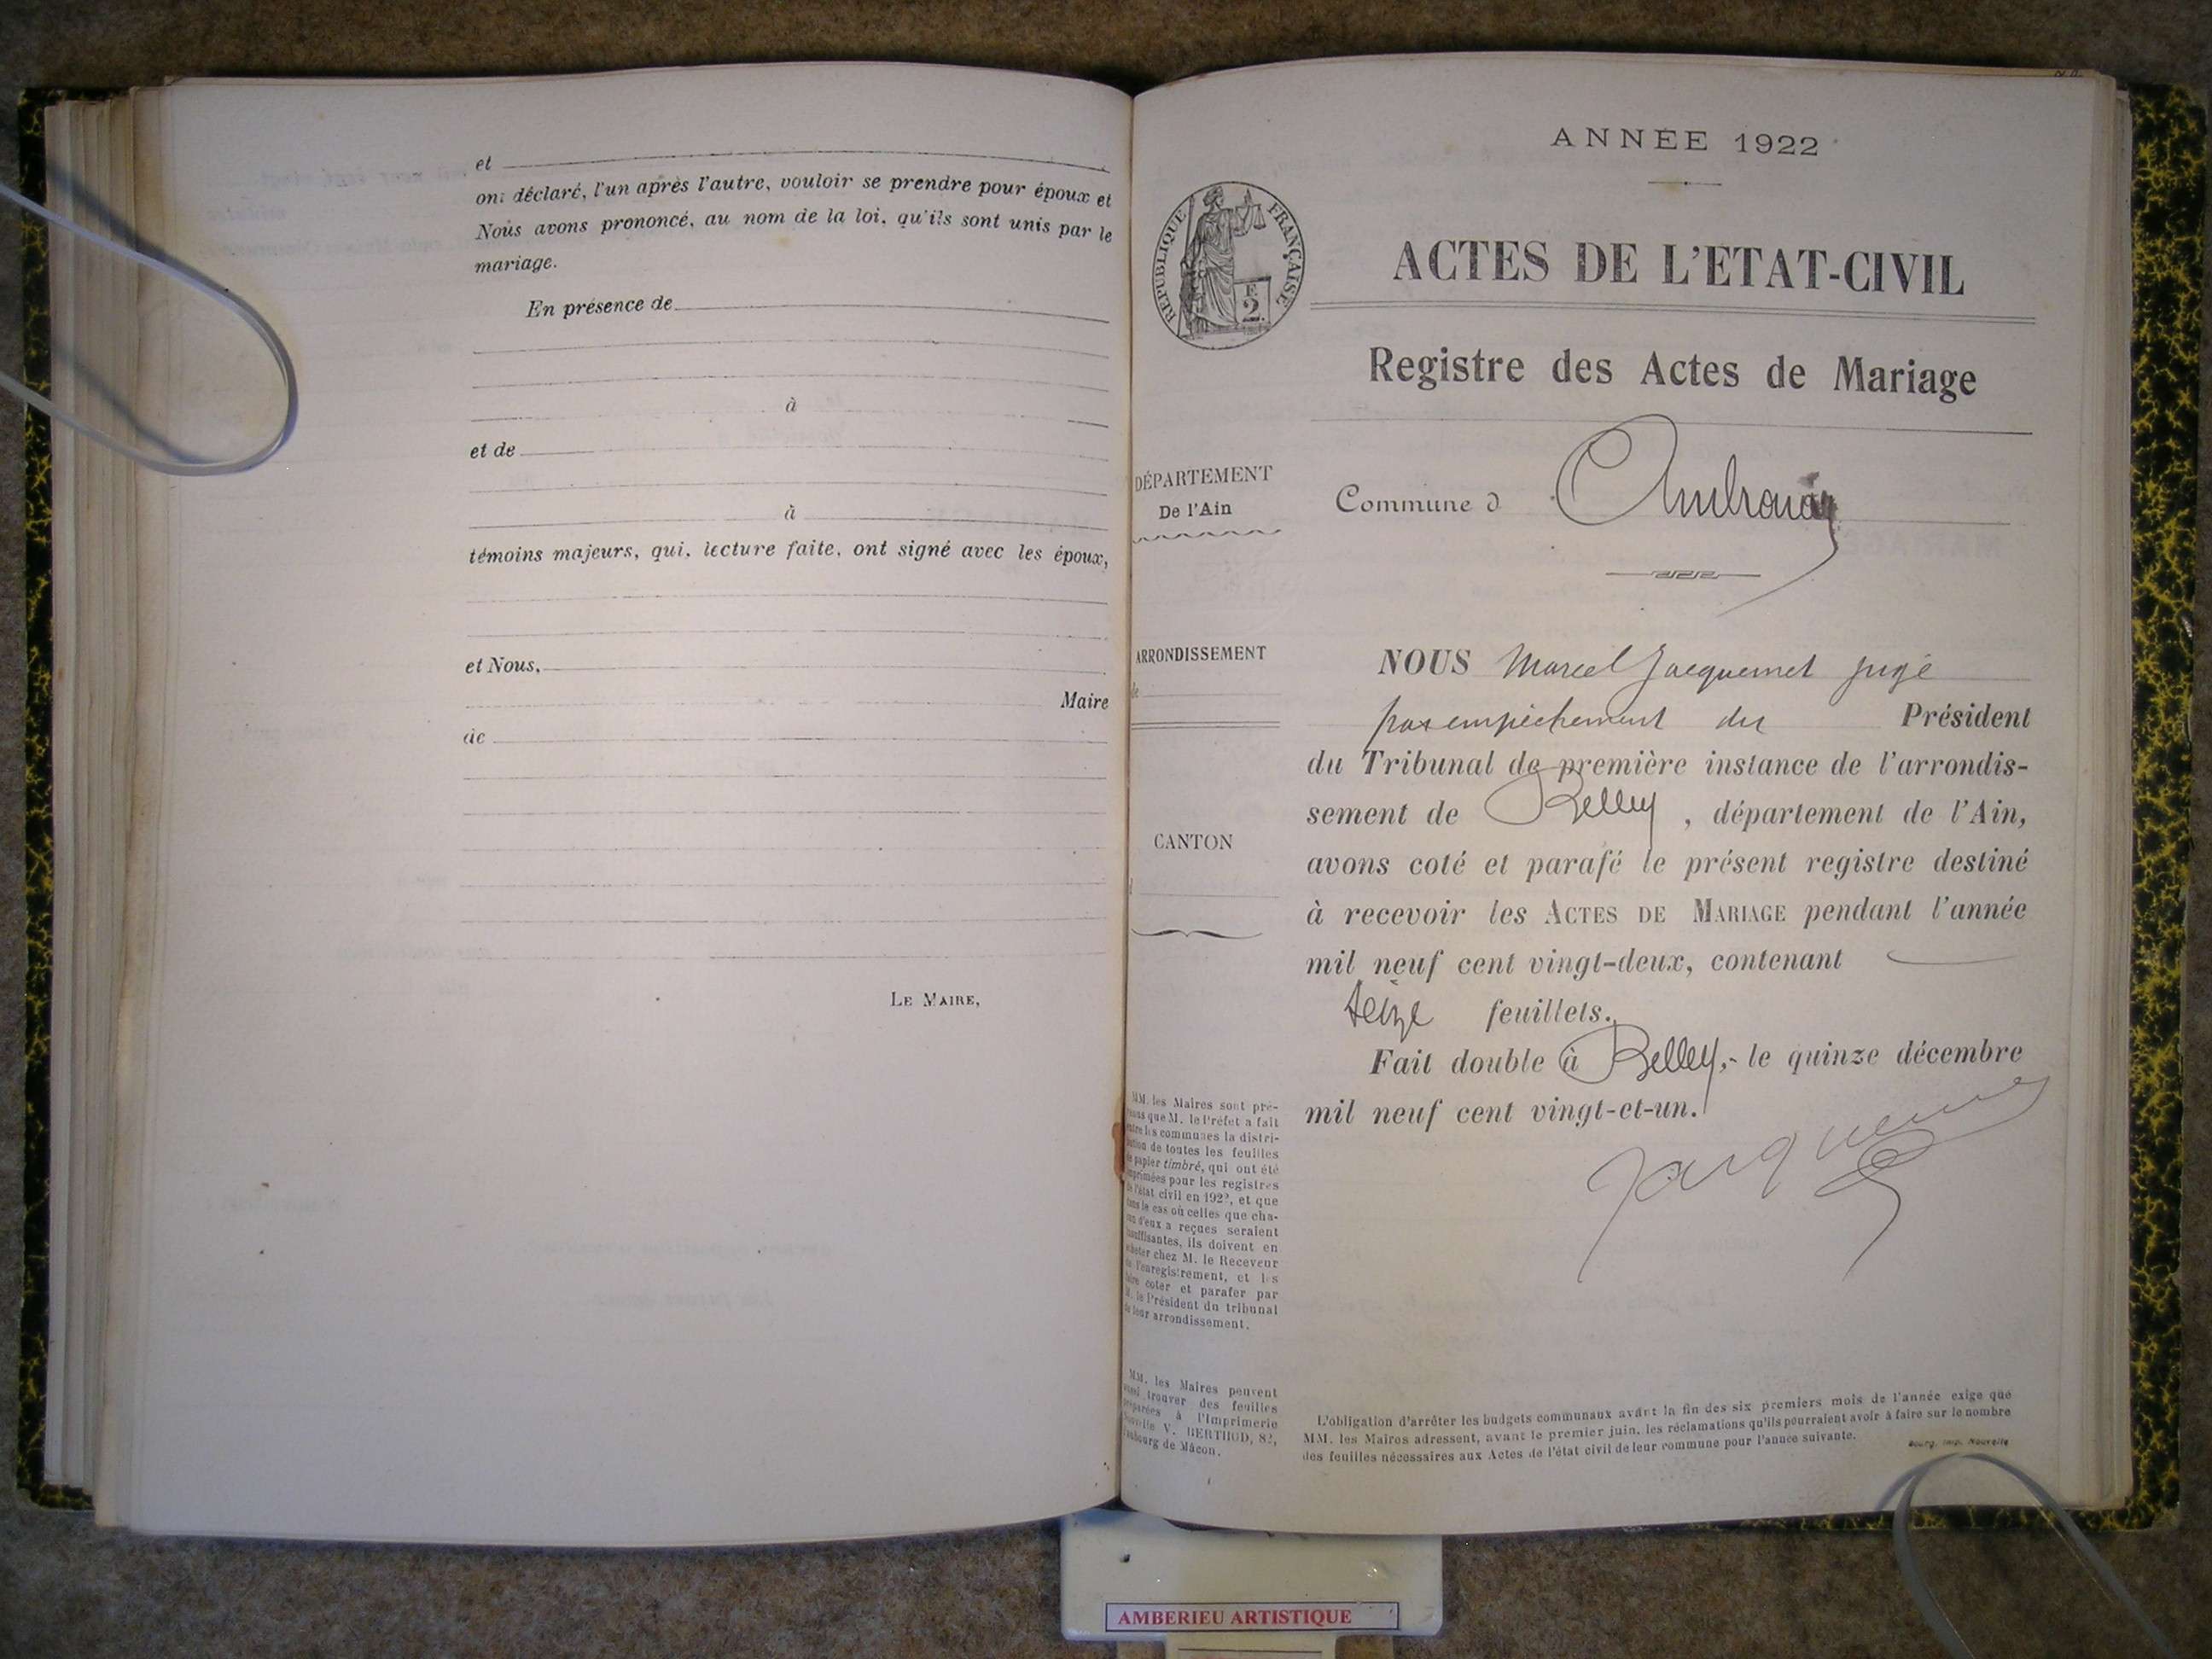 et
ont déclaré, l'un après l'autre, vouloir se prendre pour époux et
Nous avons prononcé, au nom de la loi, qu'ils sont unis par le
mariage.
En présence de
à
et de
à
témoins majeurs, qui, lecture faite, ont signé avec les époux,
et Nous,
Maire
de
LE MAIRE,
ANNÉE 1922
RÉPUBLIQUE FRANÇAISE
F.
2.
ACTES DE L'ETAT-CIVIL
Registre des Actes de Mariage
DÉPARTEMENT
De l'Ain
Commune d Ambronay
ARRONDISSEMENT
de
CANTON
d
NOUS Marcel Jacquemet juge
par empêchement du Président
du Tribunal de première instance de l'arrondis-
sement de Belley, département de l'Ain,
avons coté et parafé le présent registre destiné
à recevoir les ACTES DE MARIAGE pendant l'année
mil neuf cent vingt-deux, contenant
seize feuillets.
Fait double à Belley, le quinze décembre
mil neuf cent vingt-et-un.
Jacquemet
MM. les Maires sont pré-
venus que M. le Préfet a fait
entre les communes la distri-
bution de toutes les feuilles
de papier timbré, qui ont été
imprimées pour les registres
de l'état civil en 1922, et que
dans le cas où celles que cha-
cun d'eux a reçues seraient
insuffisantes, ils doivent en
acheter chez M. le Receveur
de l'enregistrement, et les
faire coter et parafer par
M. le Président du tribunal
de leur arrondissement.
MM. les Maires peuvent
aussi trouver des feuilles
préparées à l'Imprimerie
Nouvelle V. BERTHOD, 82,
faubourg de Mâcon.
L'obligation d'arrêter les budgets communaux avant la fin des six premiers mois de l'année exige que
MM. les Maires adressent, avant le premier juin, les réclamations qu'ils pourraient avoir à faire sur le nombre
des feuilles nécessaires aux Actes de l'état civil de leur commune pour l'année suivante.
Bourg, Imp. Nouvelle
AMBERIEU ARTISTIQUE